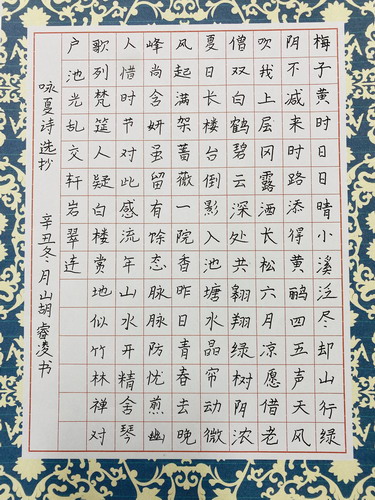 梅子黄时日日晴小溪泛尽却山行绿
阴不减来时路添得黄鹂四五声天风
吹我上层冈露洒长松六月凉愿借老
僧双白鹤碧云深处共翱翔绿树阴浓
夏日长楼台倒影入池塘水晶帘动微
风起满架蔷薇一院香昨日青春去晚
峰尚含妍虽留有馀态脉脉防忧煎幽
人惜时节对此感流年山水开精舍琴
歌列梵筵人疑白楼赏地似竹林禅对
户池光乱交轩岩翠连
咏夏诗选抄 辛丑冬月山胡睿凌书